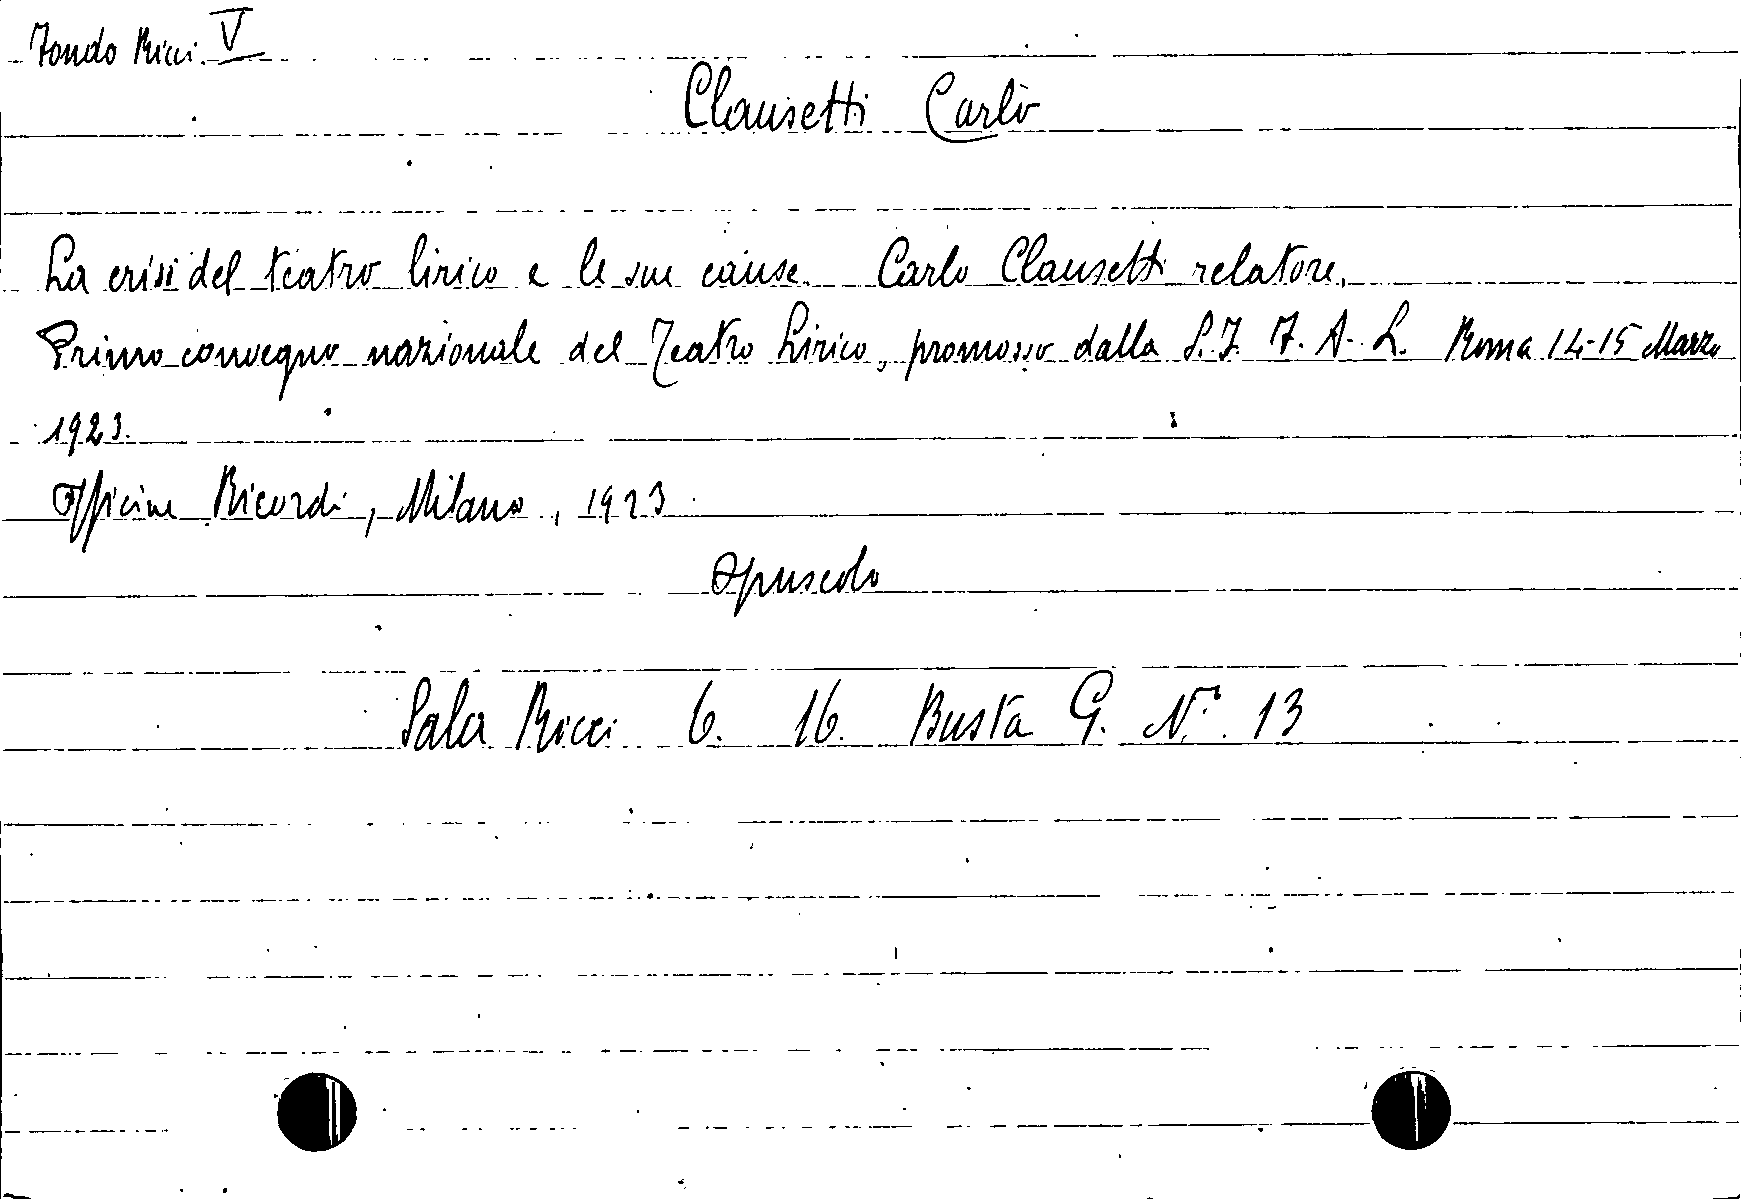 Fondo Ricci V
Clausetti Carlo
La crisi del teatro lirico e le sue cause. Carlo Clausetti relatore.
Primo convegno nazionale del Teatro Lirico, promosso dalla S.I. T. A. L. Roma 14-15 Marzo
1923.
Officine Ricordi, Milano, 1923
Opuscolo
Sala Ricci 6. 16. Busta G. N.° 13